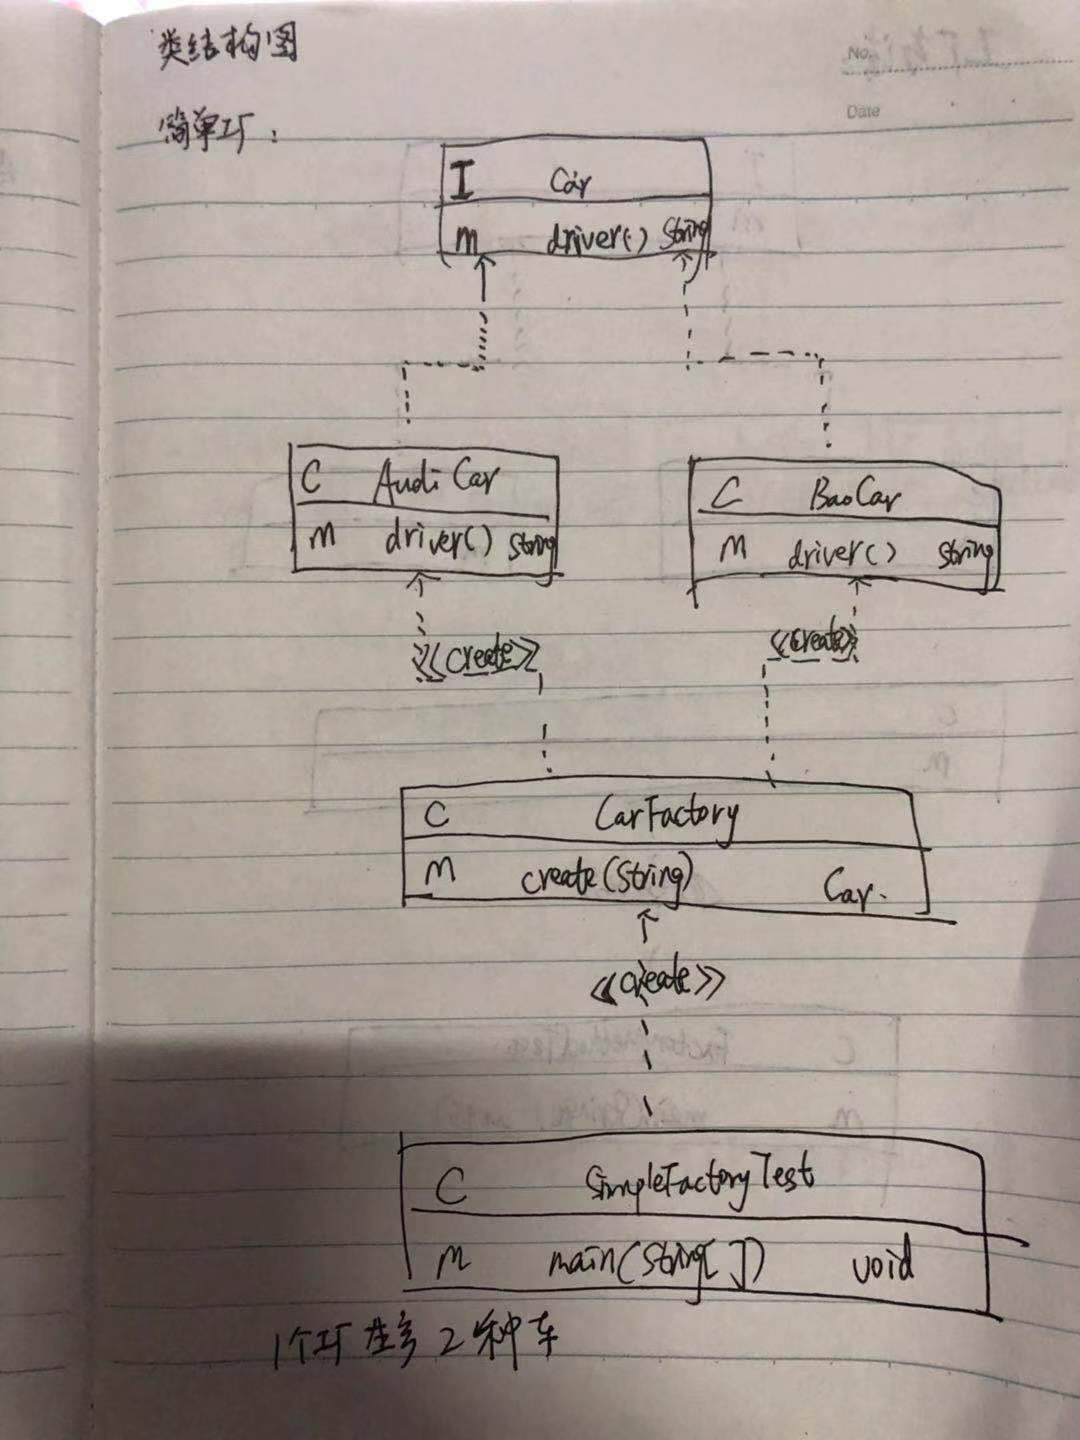 类结构图
No.
Date
简单工厂:
I Car
m driver() String
C Audi Car
m driver() string
C BaoCar
m driver() string
<<create>>
<<create>>
C CarFactory
m create(String) Car.
<<create>>
C SimpleFactoryTest
m main(String[]) void
1个工厂生产2种车